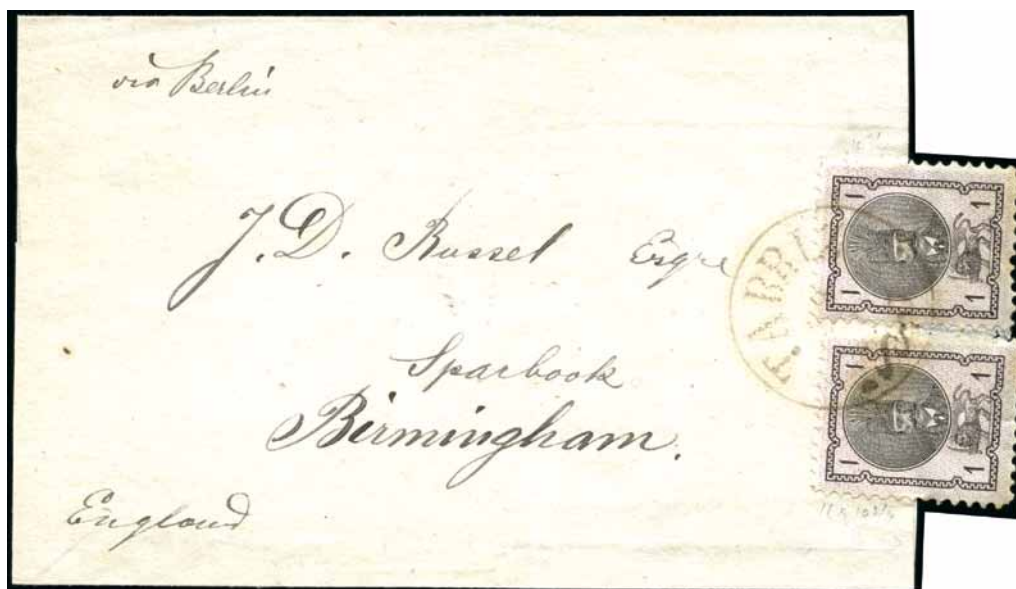 via Berlin
J. D. Russel Esqre
Sparbook
Birmingham.
England
TABRIZ
1 1
1 1
1 1
1 1